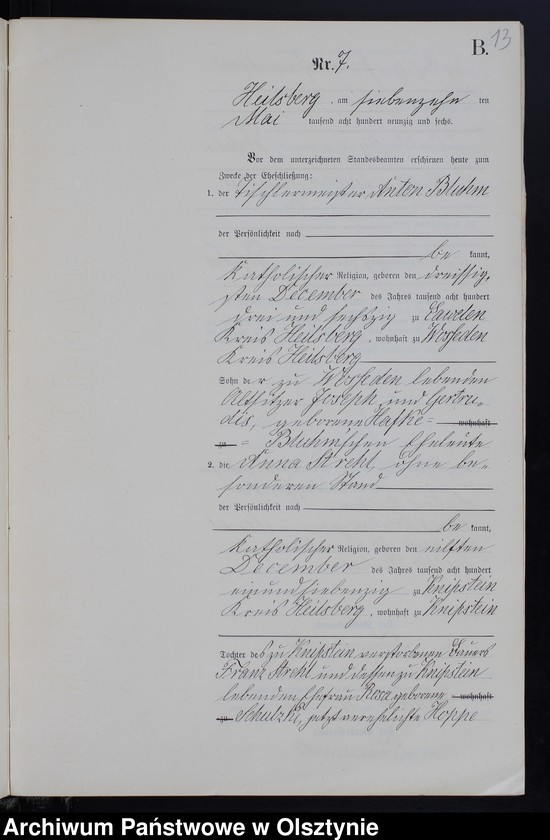 B. 13
Nr. 7.
Heilsberg, am siebenzehn ten
Mai tausend acht hundert neunzig und sechs.
Vor dem unterzeichneten Standesbeamten erschienen heute zum
Zwecke der Eheschließung:
1. der Tischlermeister Anton Bluhm
der Persönlichkeit nach
be kannt,
Katholischer Religion, geboren den dreissig-
sten December des Jahres tausend acht hundert
drei und sechszig zu Lawden
Kreis Heilsberg, wohnhaft zu Wosseden
Kreis Heilsberg
Sohn de r zu Wosseden lebenden
Altsitzer Joseph und Gertru-
dis, geborene Hafke = wohnhaft
zu = Bluhm'schen Eheleute
2. die Anna Strehl, ohne be-
sonderen Stand
der Persönlichkeit nach
be kannt,
Katholischer Religion, geboren den eilften
December des Jahres tausend acht hundert
einundsiebenzig zu Knipstein
Kreis Heilsberg, wohnhaft zu Knipstein
Tochter des zu Knipstein verstorbenen Bauers
Franz Strehl und dessen zu Knipstein
lebenden Ehefrau Rosa geborene wohnhaft
zu Schulzki, jetzt verehelichte Hoppe
Archiwum Państwowe w Olsztynie
/Skanoteka/